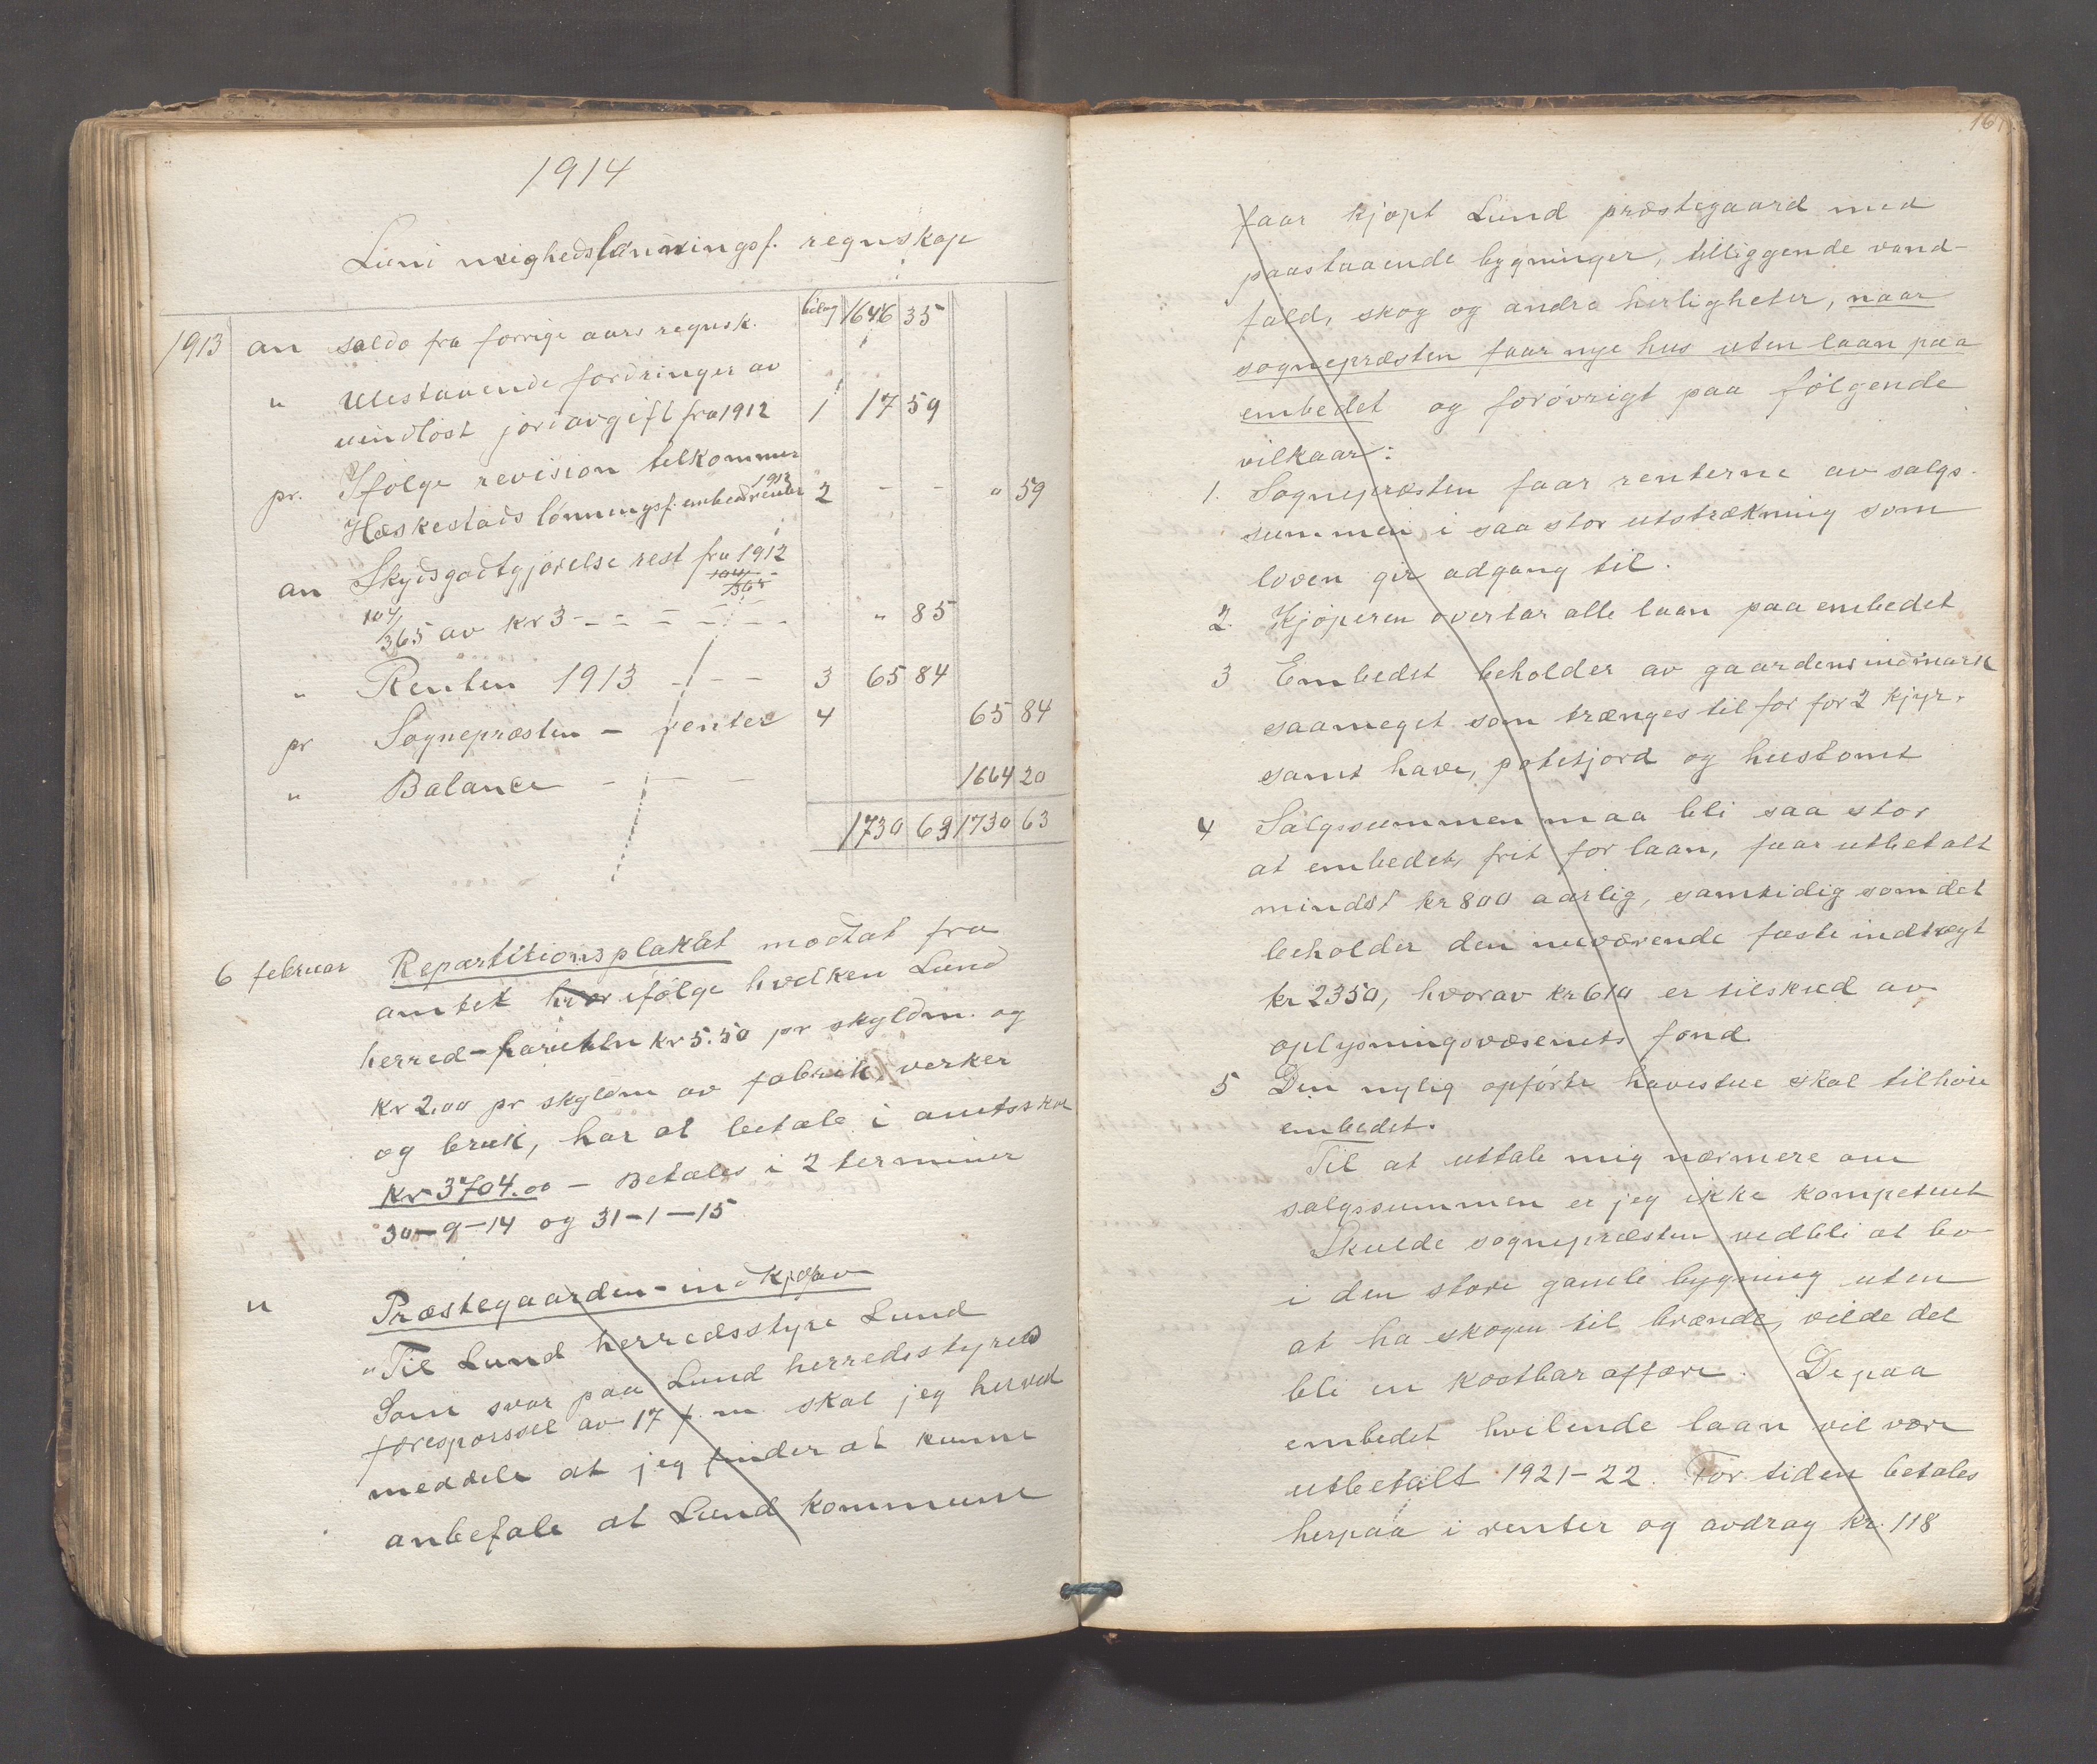 1914
Lund menighedslønningsf. regnskap
bilag
1913 an saldo fra forrige aars regnsk. 1646 35
" Utestaaende fordringer av
uindløst jordavgift fra 1912 1 17 59
pr. Ifølge revision tilkommer
Hæskestads lønningsf. embedsrenter 1912 2 - - " 59
an Skydsgodtgjørelse rest fra 1912
104/365
104/365 av kr 3 - - - - - - - " 85
" Renten 1913 - - - 3 65 84
pr Sognepræsten - renter 4 65 84
" Balance - - - 1664 20
1730 63 1730 63
6 februar Repartitionsplakat modtat fra
amtet hvor ifølge hvilken Lund
herred - kr 5.50 pr skyldm. og
kr 2.00 pr skyldm av fabrik verker
og bruk, har at betale i amtsskat
kr 3704.00 - Betales i 2 terminer
30-9-14 og 31-1-15
" Præstegaarden - indkjøp av
"Til Lund herredsstyre Lund
Som svar paa Lund herredsstyres
forespørssel av 17 f. m. skal jeg herved
meddele at jeg finder at kunne
anbefale at Lund kommune
167
faar kjøpt Lund præstegaard med
paastaaende bygninger, tilliggende vand-
fald, skog og andre herligheter, naar
sognepræsten faar nye hus uten laan paa
embedet og forøvrigt paa følgende
vilkaar:
1. Sognepræsten faar renterne av salgs-
summen i saa stor utstrækning som
loven gir adgang til.
2. Kjøperen overtar alle laan paa embedet
3 Embedet beholder av gaardens indmark
saameget som trænges til for for 2 kjyr,
samt have, potetjord og hustomt
4 Salgssummen maa bli saa stor
at embedet, frit for laan, faar utbetalt
mindst kr 800 aarlig, samtidig som det
beholder den nuværende faste indtægt
kr 2350, hvorav kr 610 er tilskud av
oplysningsvæsenets fond.
5 Den nylig opførte havestue skal tilhøre
embedet.
Til at uttale mig nærmere om
salgssummen er jeg ikke kompetent
Skulde sognepræsten vedbli at bo
i den store gamle bygning uten
at ha skogen til brænde, vilde det
bli en kostbar affære. De paa
embedet hvilende laan vil være
utbetalt 1921-22. For tiden betales
herpaa i renter og avdrag kr. 118